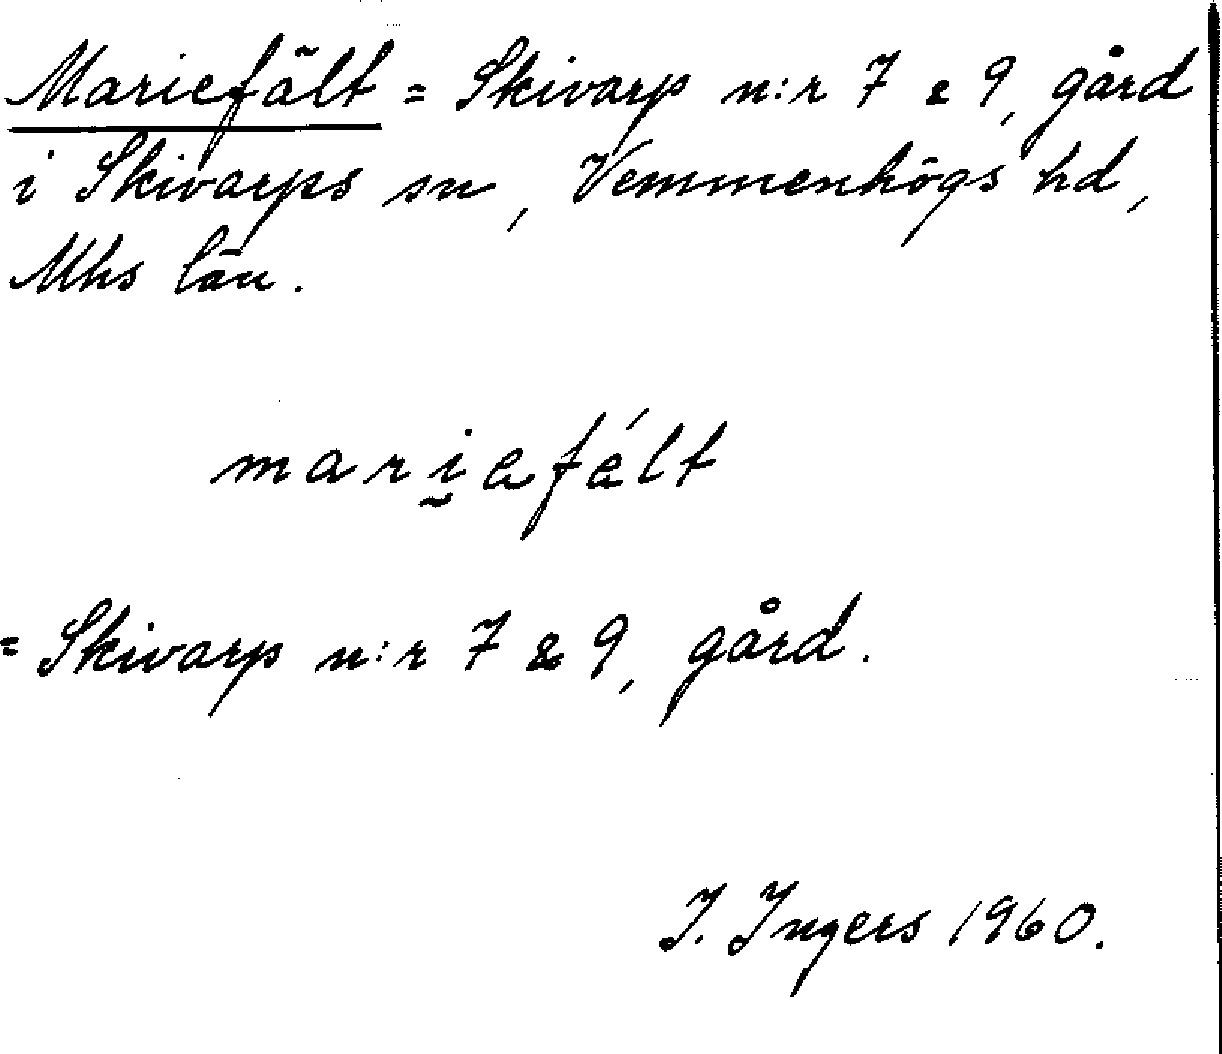 Mariefält = Skivarp n:r 7 & 9, gård
i Skivarps sn, Vemmenhögs hd,
Mhs län.
marḭefélt
= Skivarp n:r 7 & 9, gård.
I. Ingers 1960.